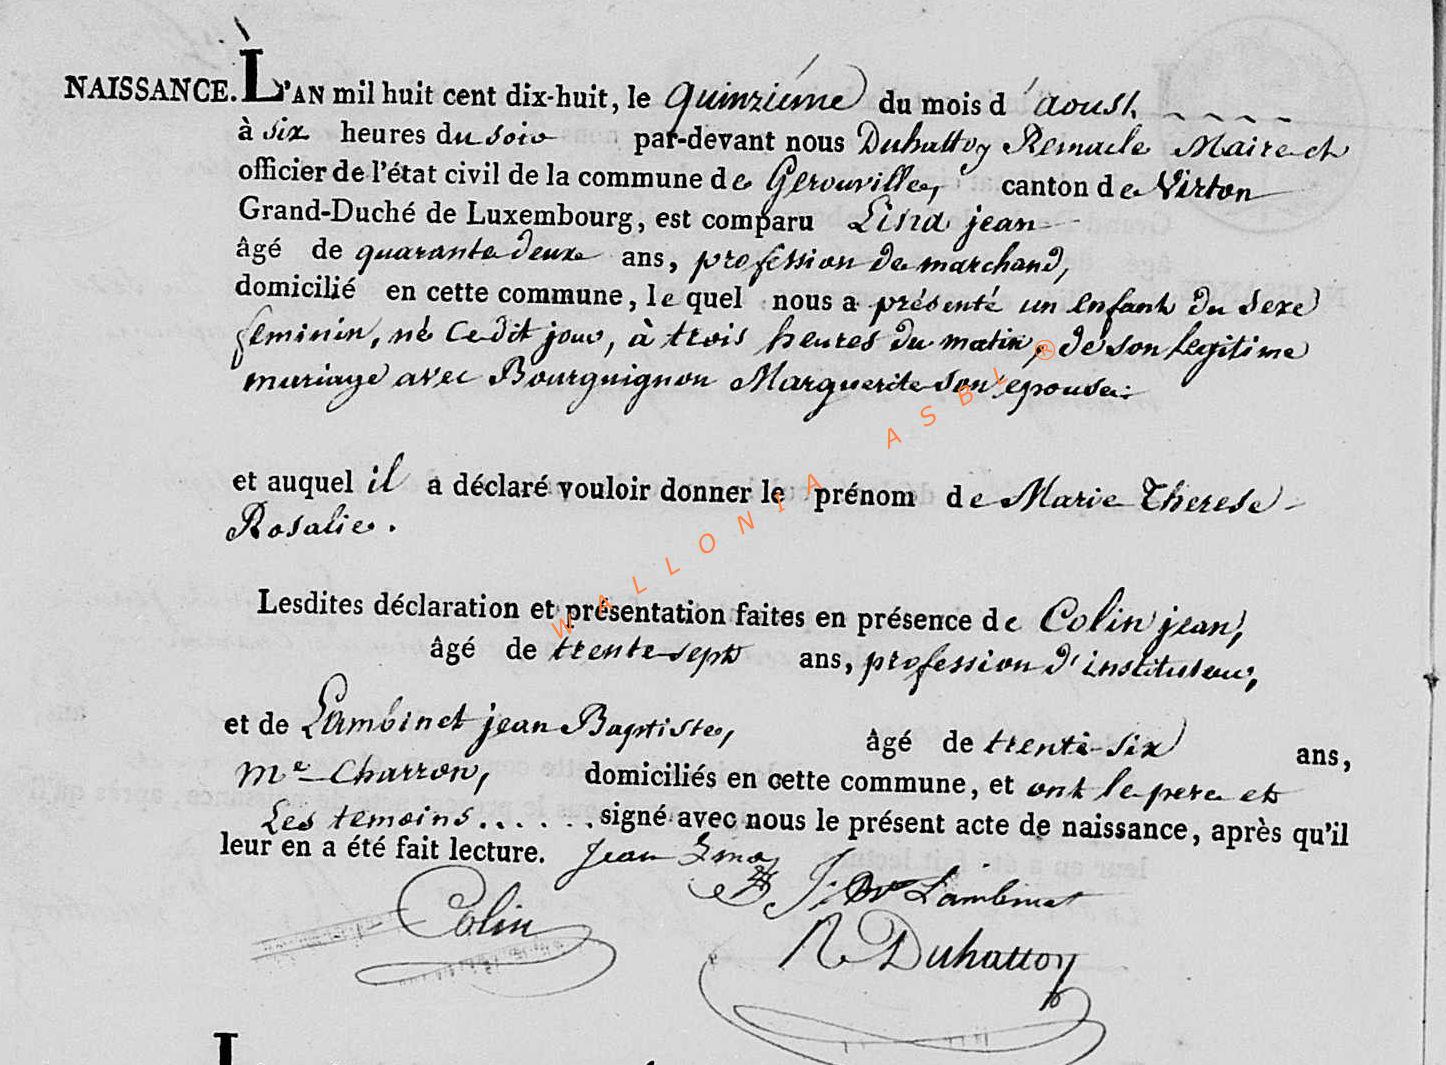 NAISSANCE. L'AN mil huit cent dix-huit, le quinziéme du mois d'aoust
à six heures du soir par-devant nous Duhattoy Remacle Maire et
officier de l'état civil de la commune de Gerouville, canton de Virton
Grand-Duché de Luxembourg, est comparu Lina jean
âgé de quarante deux ans, profession de marchand,
domicilié en cette commune, le quel nous a présenté un enfant du sexe
feminin, né ce dit jour, à trois heures du matin, de son legitime
mariage avec Bourguignon Marguerite son epouse
et auquel il a déclaré vouloir donner le prénom de Marie Therese
Rosalie.
WALLONIA ASBL ®
Lesdites déclaration et présentation faites en présence de Colin jean,
âgé de trente sept ans, profession d'instituteur,
et de Lambinet jean Baptiste, âgé de trente-six ans,
me Charron, domiciliés en cette commune, et ont le pere et
Les temoins......signé avec nous le présent acte de naissance, après qu'il
leur en a été fait lecture. Jean Lina
J: Bte Lambinet
Colin
R Duhattoy
L